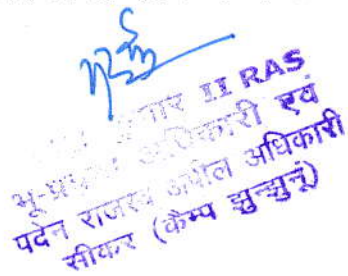 II RAS
भू-प्रबन्ध अधिकारी एवं
पदेन राजस्व अपील अधिकारी
सीकर (कैम्प झुन्झुनूं)